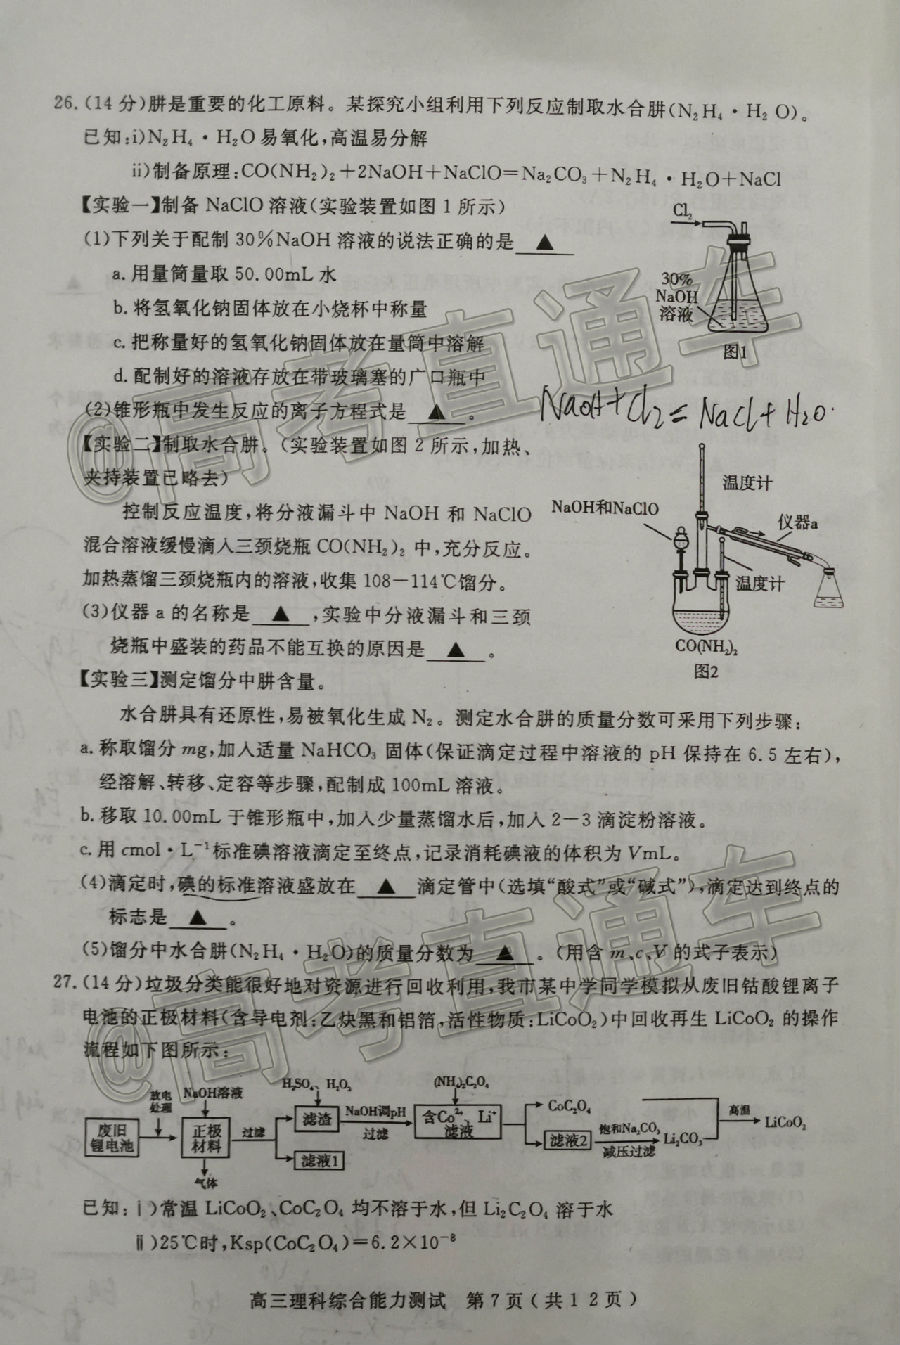 26.(14分)肼是重要的化工原料。某探究小组利用下列反应制取水合肼(N₂H₄・H₂O)。
已知:i)N₂H₄・H₂O易氧化,高温易分解
ii)制备原理:CO(NH₂)₂+2NaOH+NaClO=Na₂CO₃+N₂H₄・H₂O+NaCl
【实验一】制备NaClO溶液(实验装置如图1所示)
(1)下列关于配制30%NaOH溶液的说法正确的是 ▲
a.用量筒量取50.00mL水
b.将氢氧化钠固体放在小烧杯中称量
c.把称量好的氢氧化钠固体放在量筒中溶解
d.配制好的溶液存放在带玻璃塞的广口瓶中
Cl₂
30%
NaOH
溶液
图1
(2)锥形瓶中发生反应的离子方程式是 ▲ 。
NaOH+Cl₂=NaCl+H₂O
【实验二】制取水合肼。(实验装置如图2所示,加热、
夹持装置已略去)
控制反应温度,将分液漏斗中NaOH和NaClO
混合溶液缓慢滴入三颈烧瓶CO(NH₂)₂中,充分反应。
加热蒸馏三颈烧瓶内的溶液,收集108—114℃馏分。
(3)仪器a的名称是 ▲ ,实验中分液漏斗和三颈
烧瓶中盛装的药品不能互换的原因是 ▲ 。
温度计
NaOH和NaClO
仪器a
温度计
CO(NH₂)₂
图2
【实验三】测定馏分中肼含量。
水合肼具有还原性,易被氧化生成N₂。测定水合肼的质量分数可采用下列步骤:
a.称取馏分mg,加入适量NaHCO₃固体(保证滴定过程中溶液的pH保持在6.5左右),
经溶解、转移、定容等步骤,配制成100mL溶液。
b.移取10.00mL于锥形瓶中,加入少量蒸馏水后,加入2—3滴淀粉溶液。
c.用cmol・L⁻¹标准碘溶液滴定至终点,记录消耗碘液的体积为VmL。
(4)滴定时,碘的标准溶液盛放在 ▲ 滴定管中(选填“酸式”或“碱式”),滴定达到终点的
标志是 ▲ 。
(5)馏分中水合肼(N₂H₄・H₂O)的质量分数为 ▲ 。(用含m、c、V的式子表示)
27.(14分)垃圾分类能很好地对资源进行回收利用,我市某中学同学模拟从废旧钴酸锂离子
电池的正极材料(含导电剂:乙炔黑和铝箔,活性物质:LiCoO₂)中回收再生LiCoO₂的操作
流程如下图所示:
废旧
锂电池
放电
处理
NaOH溶液
正极
材料
气体
过滤
H₂SO₄、H₂O₂
滤渣
滤液1
NaOH调pH
过滤
(NH₄)₂C₂O₄
含Co²⁺、Li⁺
滤液
CoC₂O₄
滤液2
饱和Na₂CO₃
减压过滤
Li₂CO₃
高温
LiCoO₂
已知:ⅰ)常温LiCoO₂、CoC₂O₄均不溶于水,但Li₂C₂O₄溶于水
ⅱ)25℃时,Ksp(CoC₂O₄)=6.2×10⁻⁸
高三理科综合能力测试 第7页(共12页)
@高考直通车
@高考直通车